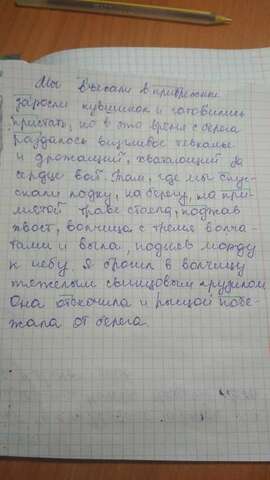 Мы въехали в прибрежные
заросли кувшинок и готовились
пристать, но в это время с берега
раздалось визгливое тявканье
и дрожащий, хватающий за
сердце вой. Там, где мы спус-
скали лодку, на берегу, на при-
мятой траве стояла, поджав
хвост, волчица с тремя волча-
тами и выла, подняв морду
к небу. Я бросил в волчицу
тяжелым свинцовым грузилом
Она отскочила и рысцой побе-
жала от берега.